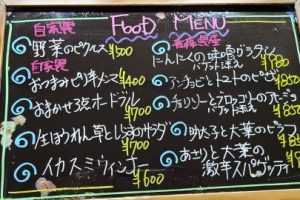 FOOD MENU
自家製
野菜のピクルス ¥500
自家製
おつまみピリ辛メンマ ¥400
おまかせ3点オードブル ¥700
生ほうれん草としらすのサラダ ¥700
イカスミウィンナー ¥600
青森県産
にんにくの味噌グラタン
バケット
アンチョビとトマトのピザ
チョリソーとブロッコリーの
バケット ¥850
明太子と大葉のピザ ¥850
あさりと大葉の
激辛スパゲッティ